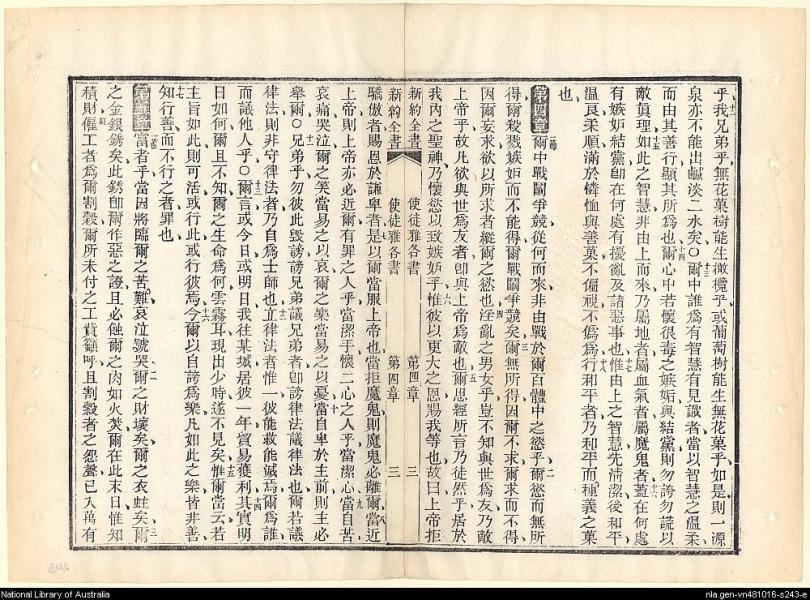 乎我兄弟乎無花菓樹能生橄欖乎或葡萄樹能生無花菓乎如是則一源
泉亦不能出鹹淡二水矣〇爾中誰爲有智慧有見識者當以智慧之溫柔
而由其善行顯其所爲也爾心中若懷很毒之嫉妬與結黨則勿誇勿謊以
敵眞理如此之智慧非由上而來乃屬地者屬血氣者屬魔鬼者蓋在何處
有嫉妬結黨卽在何處有擾亂及諸惡事也惟由上之智慧先淸潔後和平
溫良柔順滿於憐恤與善菓不偏視不僞爲行和平者乃和平而種義之菓
也
第四章 爾中戰鬭爭競從何而來非由戰於爾百體中之慾乎爾慾而無所
得爾殺戮嫉妬而不能得爾戰鬭爭競矣爾無所得因爾不求爾求而不得
因爾妄求欲以所求者縱爾之慾也淫亂之男女乎豈不知與世爲友乃敵
上帝乎故凡欲與世爲友者卽與上帝爲敵也爾思經所言乃徒然乎居於
我內之聖神乃懷慾以致嫉妬乎惟彼以更大之恩賜我等也故曰上帝拒
新約全書 使徒雅各書 第四章 三
新約全書 使徒雅各書 第四章 三
驕傲者賜恩於謙卑者是以爾當服上帝也當拒魔鬼則魔鬼必離爾當近
上帝則上帝亦必近爾有罪之人乎當潔手懷二心之人乎當潔心當自苦
哀痛哭泣爾之笑當易之以哀爾之樂當易之以憂當自卑於主前則主必
舉爾〇兄弟乎勿彼此毀謗謗兄弟議兄弟者卽謗律法議律法也爾若議
律法則非守律法者乃自爲士師也立律法者惟一彼能救能滅焉爾爲誰
而議他人乎〇爾言或今日或明日我往某城居彼一年貿易獲利其實明
日如何爾且不知爾之生命爲何雲霧耳現出少時遂不見矣惟爾當云若
主旨如此則可活或行此或行彼焉今爾以自誇爲樂凡如此之樂皆非善
知行善而不行之者罪也
第五章 富者乎當因將臨爾之苦難哀泣號哭爾之財壞矣爾之衣蛀矣爾
之金銀銹矣此銹卽爾作惡之證且必蝕爾之肉如火焚爾在此末日惟知
積財傭工者爲爾割穀爾所未付之工貲籲呼且割穀者之怨聲已入萬有
National Library of Australia
nla.gen-vn481016-s243-e